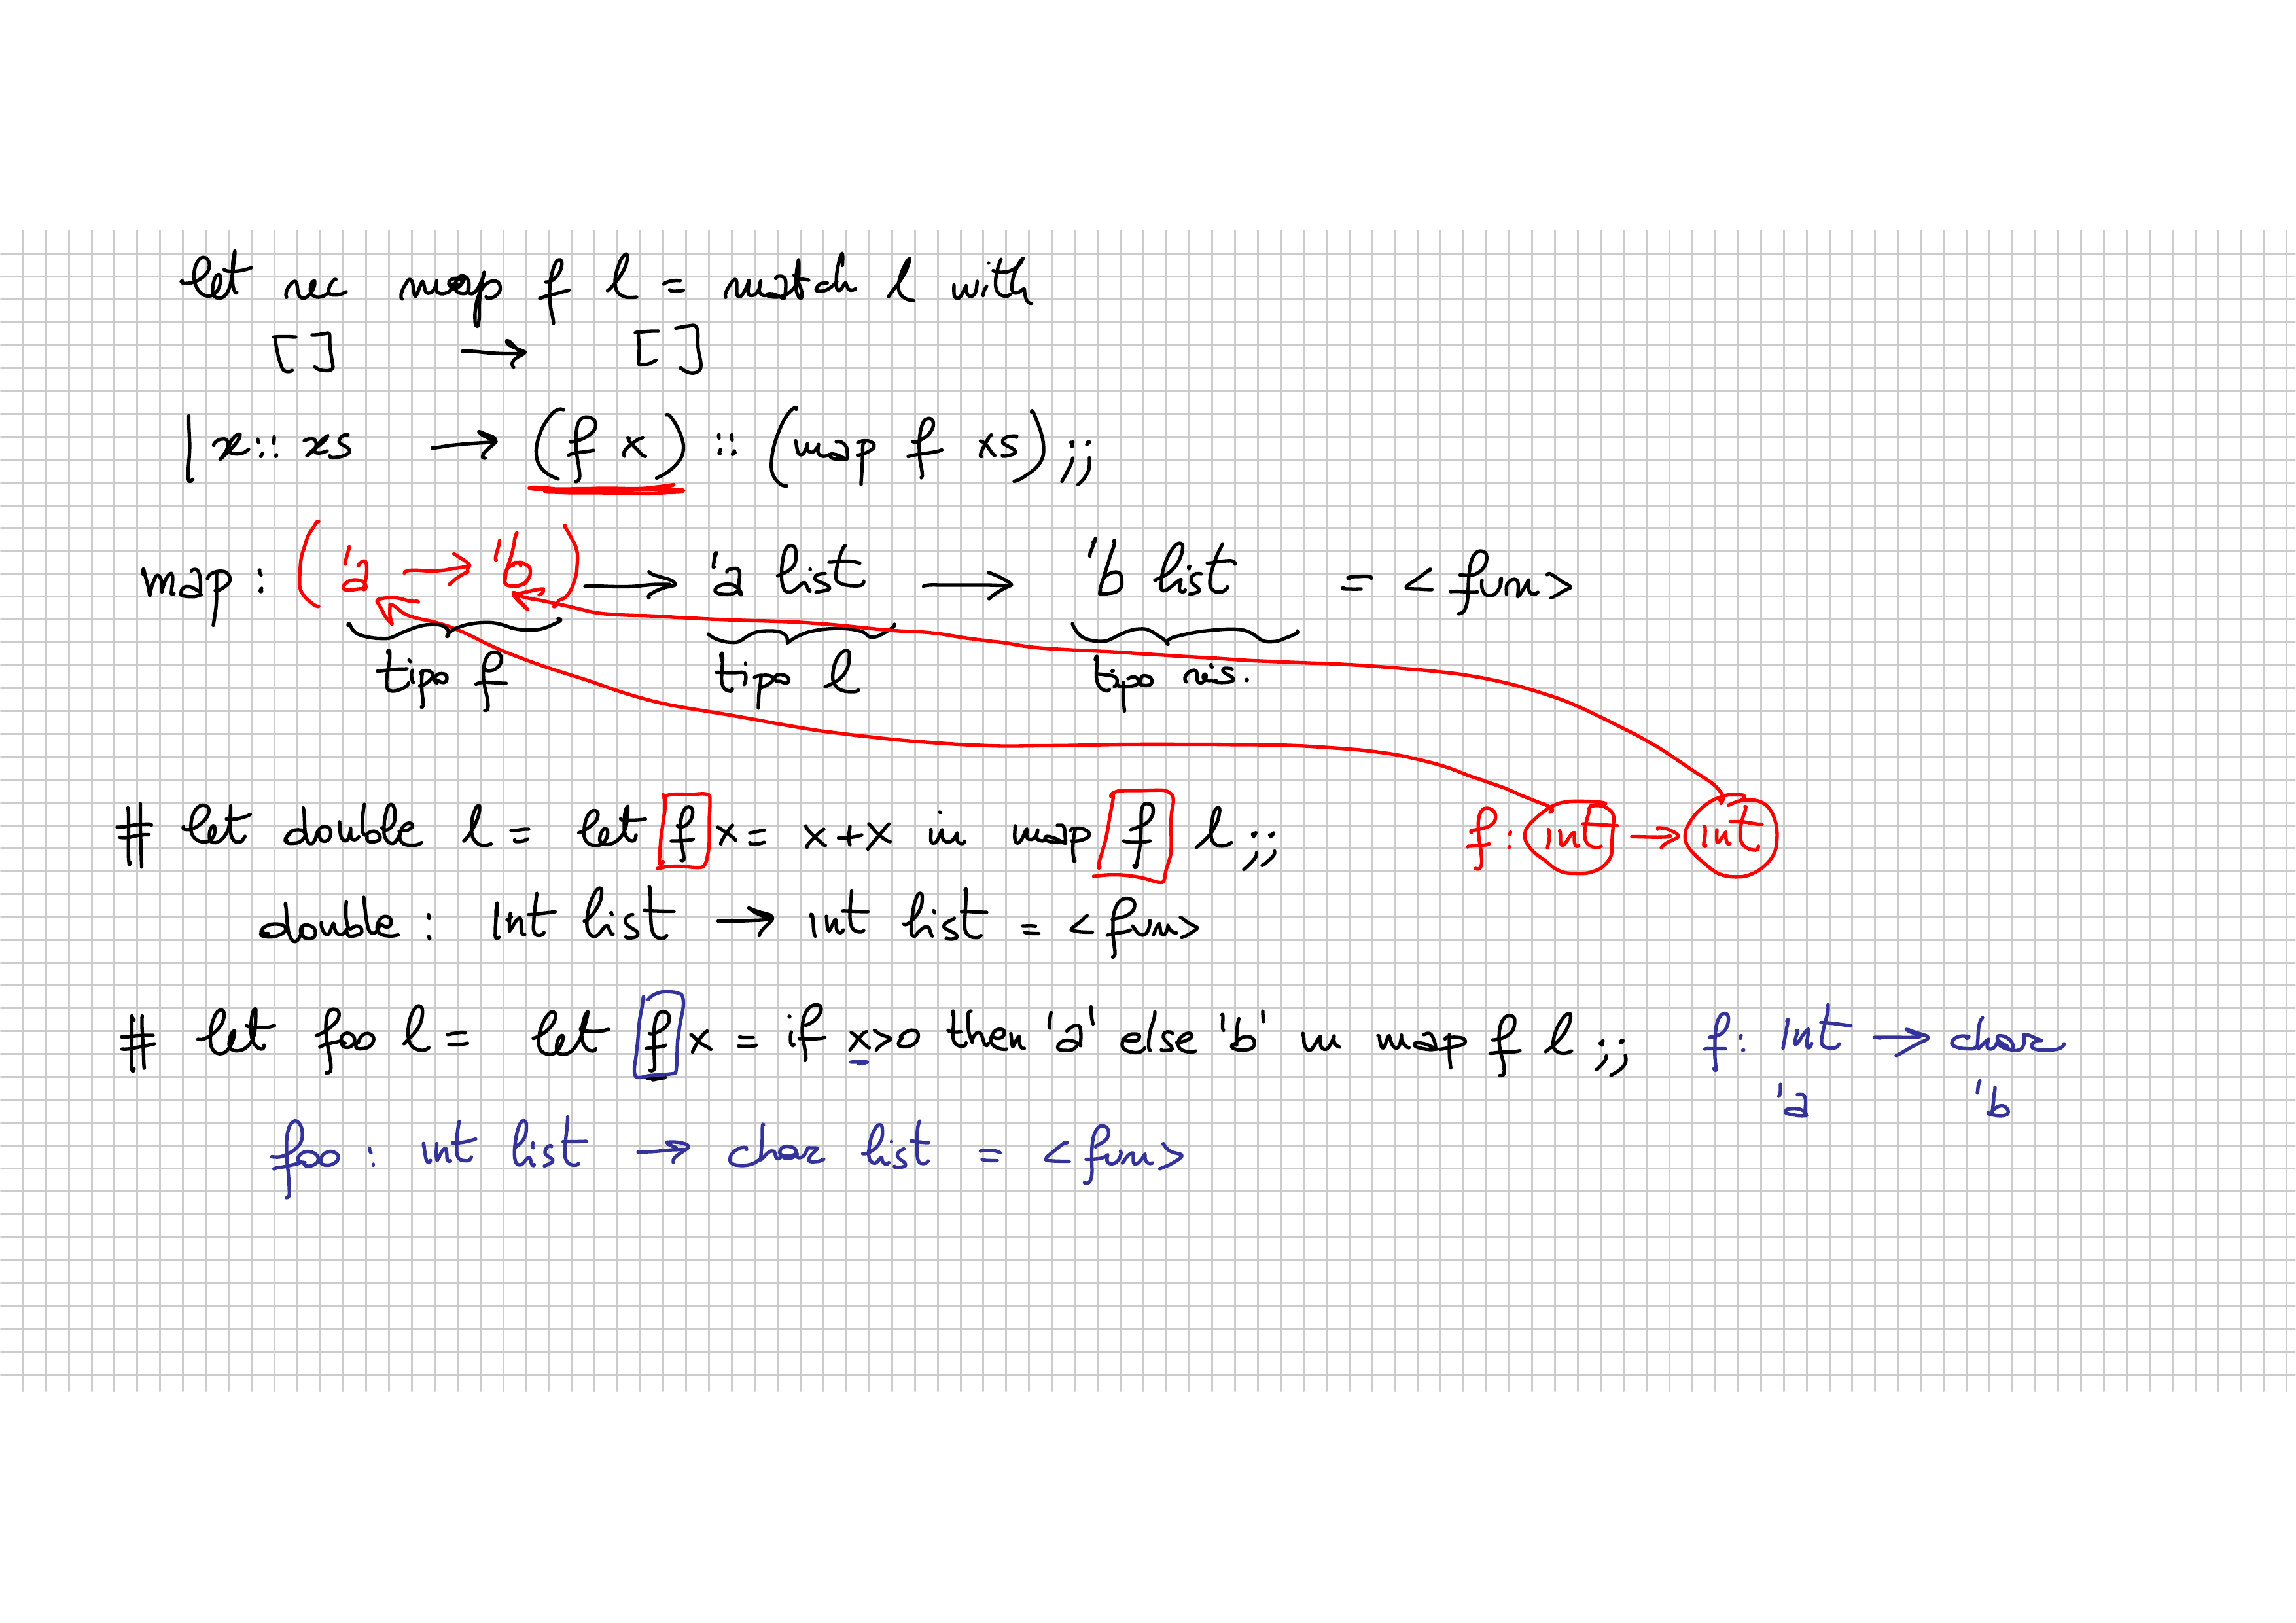 let rec map f l = match l with
[] → []
| x::xs → (f x) :: (map f xs);;
map: ('a → 'b) → 'a list → 'b list = <fun>
tipo f tipo l tipo ris.
# let double l = let f x = x+x in map f l;; f: int → int
double: int list → int list = <fun>
# let foo l = let f x = if x>0 then 'a' else 'b' in map f l;; f: int → char
'a 'b
foo: int list → char list = <fun>